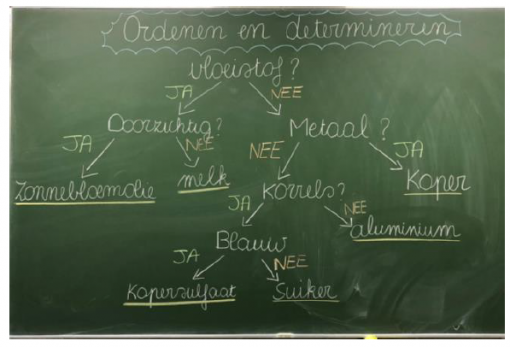 Ordenen en determineren
vloeistof?
JA NEE
Doorzichtig? Metaal?
JA NEE NEE JA
Zonnebloemolie melk Korrels? Koper
JA NEE
Blauw aluminium
JA NEE
Kopersulfaat Suiker